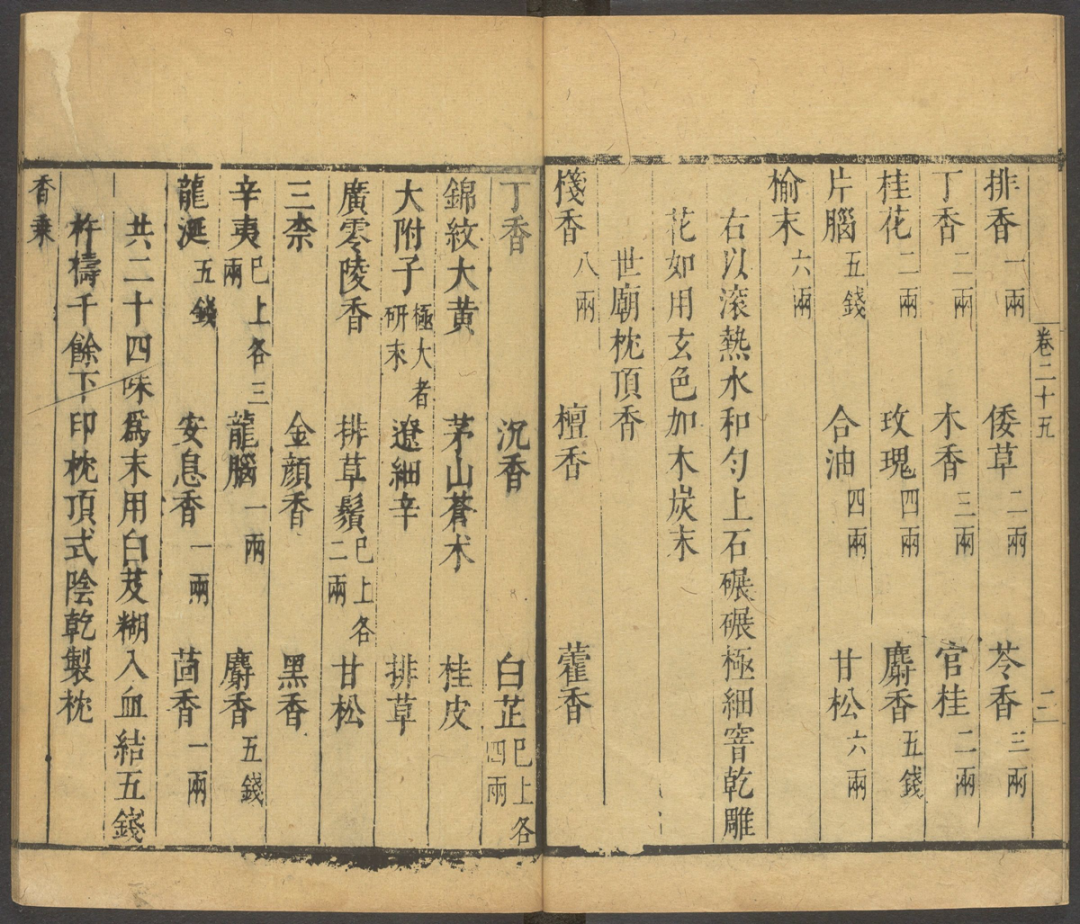 卷二十五 二
排香一兩 倭草二兩 苓香三兩
丁香二兩 木香三兩 官桂二兩
桂花二兩 玫瑰四兩 麝香五錢
片腦五錢 合油四兩 甘松六兩
榆末六兩
右以滚熱水和勻上石碾碾極細窨乾雕
花如用玄色加木炭末
世廟枕頂香
棧香八兩 檀香 藿香
丁香 沉香 白芷已上各四兩
錦紋大黃 茅山蒼术 桂皮
大附子極大者研末 遼細辛 排草
廣零陵香 排草鬚已上各二兩 甘松
三柰 金顏香 黑香
辛夷已上各三兩 龍腦一兩 麝香五錢
龍涎五錢 安息香一兩 茴香一兩
共二十四味爲末用白芨糊入血結五錢
杵擣千餘下印枕頂式陰乾製枕
香乘